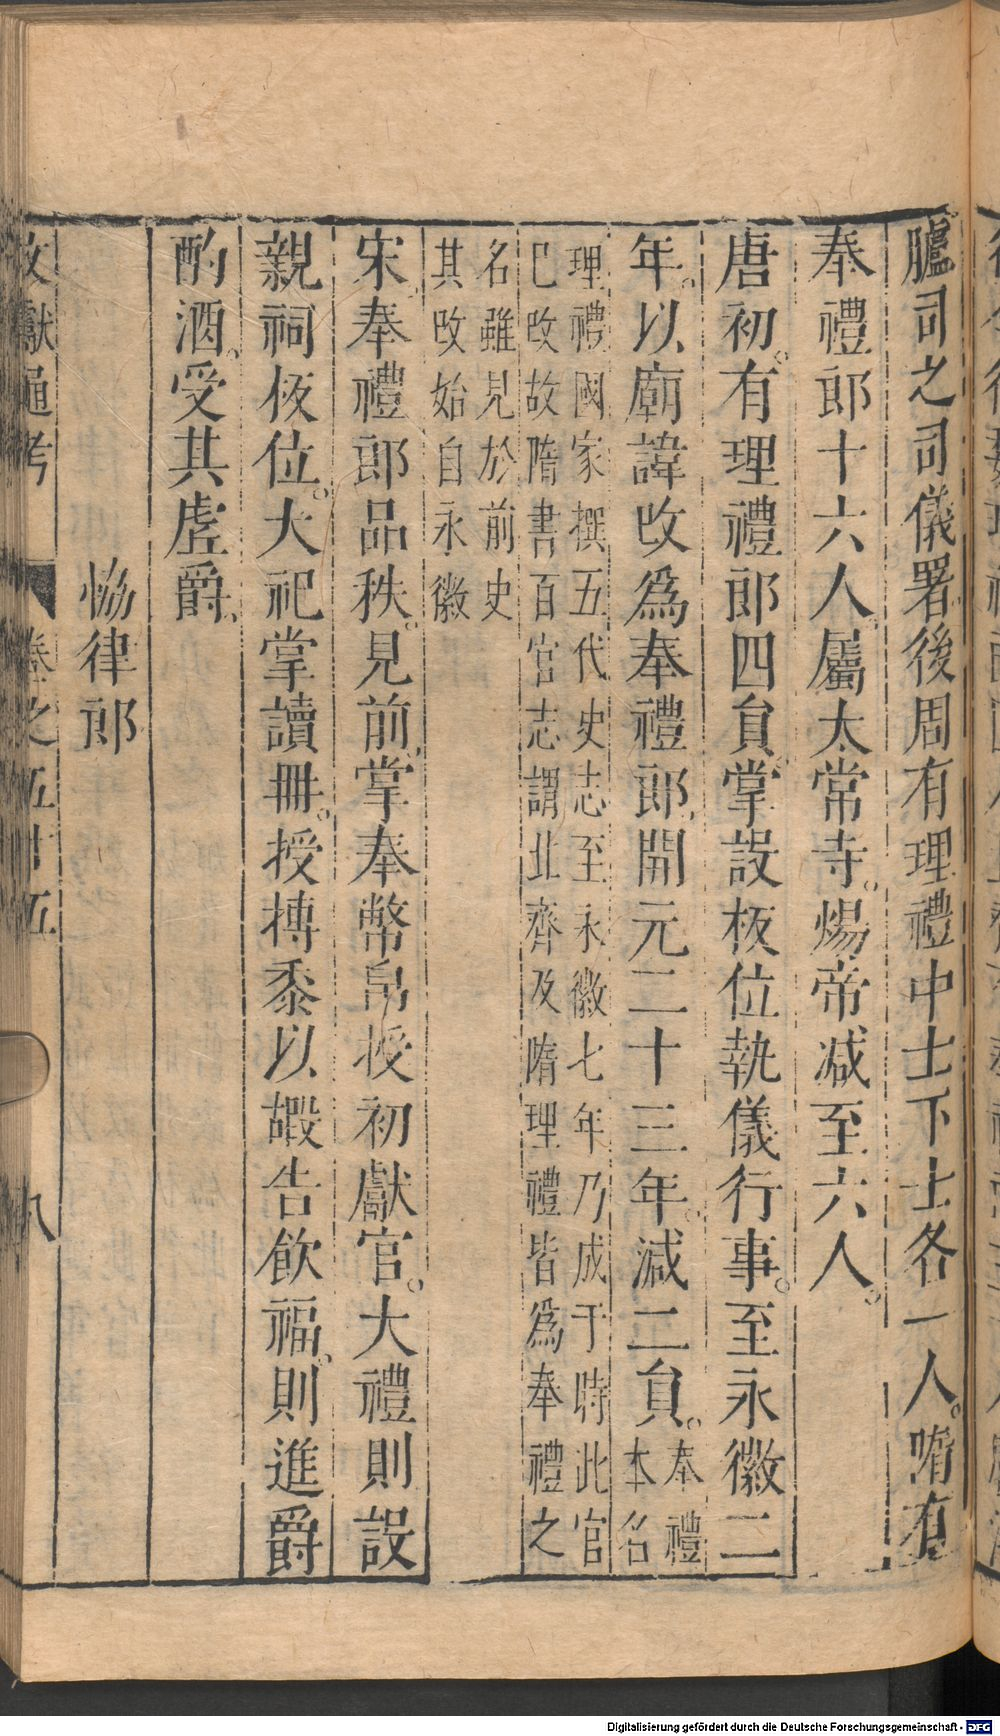 臚司之司儀署後周有理禮中士下士各一人。隋有
奉禮郎十六人。屬太常寺。煬帝减至六人。
唐初。有理禮郎四貟。掌設板位執儀行事。至永徽二
年。以廟諱攺爲奉禮郎。開元二十三年。減二貟。奉禮
本名
理禮國家撰五代史志至永徽七年乃成于時此官
已攺故隋書百官志謂北齊及隋理禮皆爲奉禮之
名雖見於前史
其攺始自永徽
宋。奉禮郎品秩。見前。掌奉幣帛授初獻官。大禮則設
親祠板位。大祀掌讀冊。授摶黍以嘏告飲福。則進爵
酌酒。受其虗爵。
恊律郎
文獻通考 卷之五十五 八
Digitalisierung gefördert durch die Deutsche Forschungsgemeinschaft - DFG